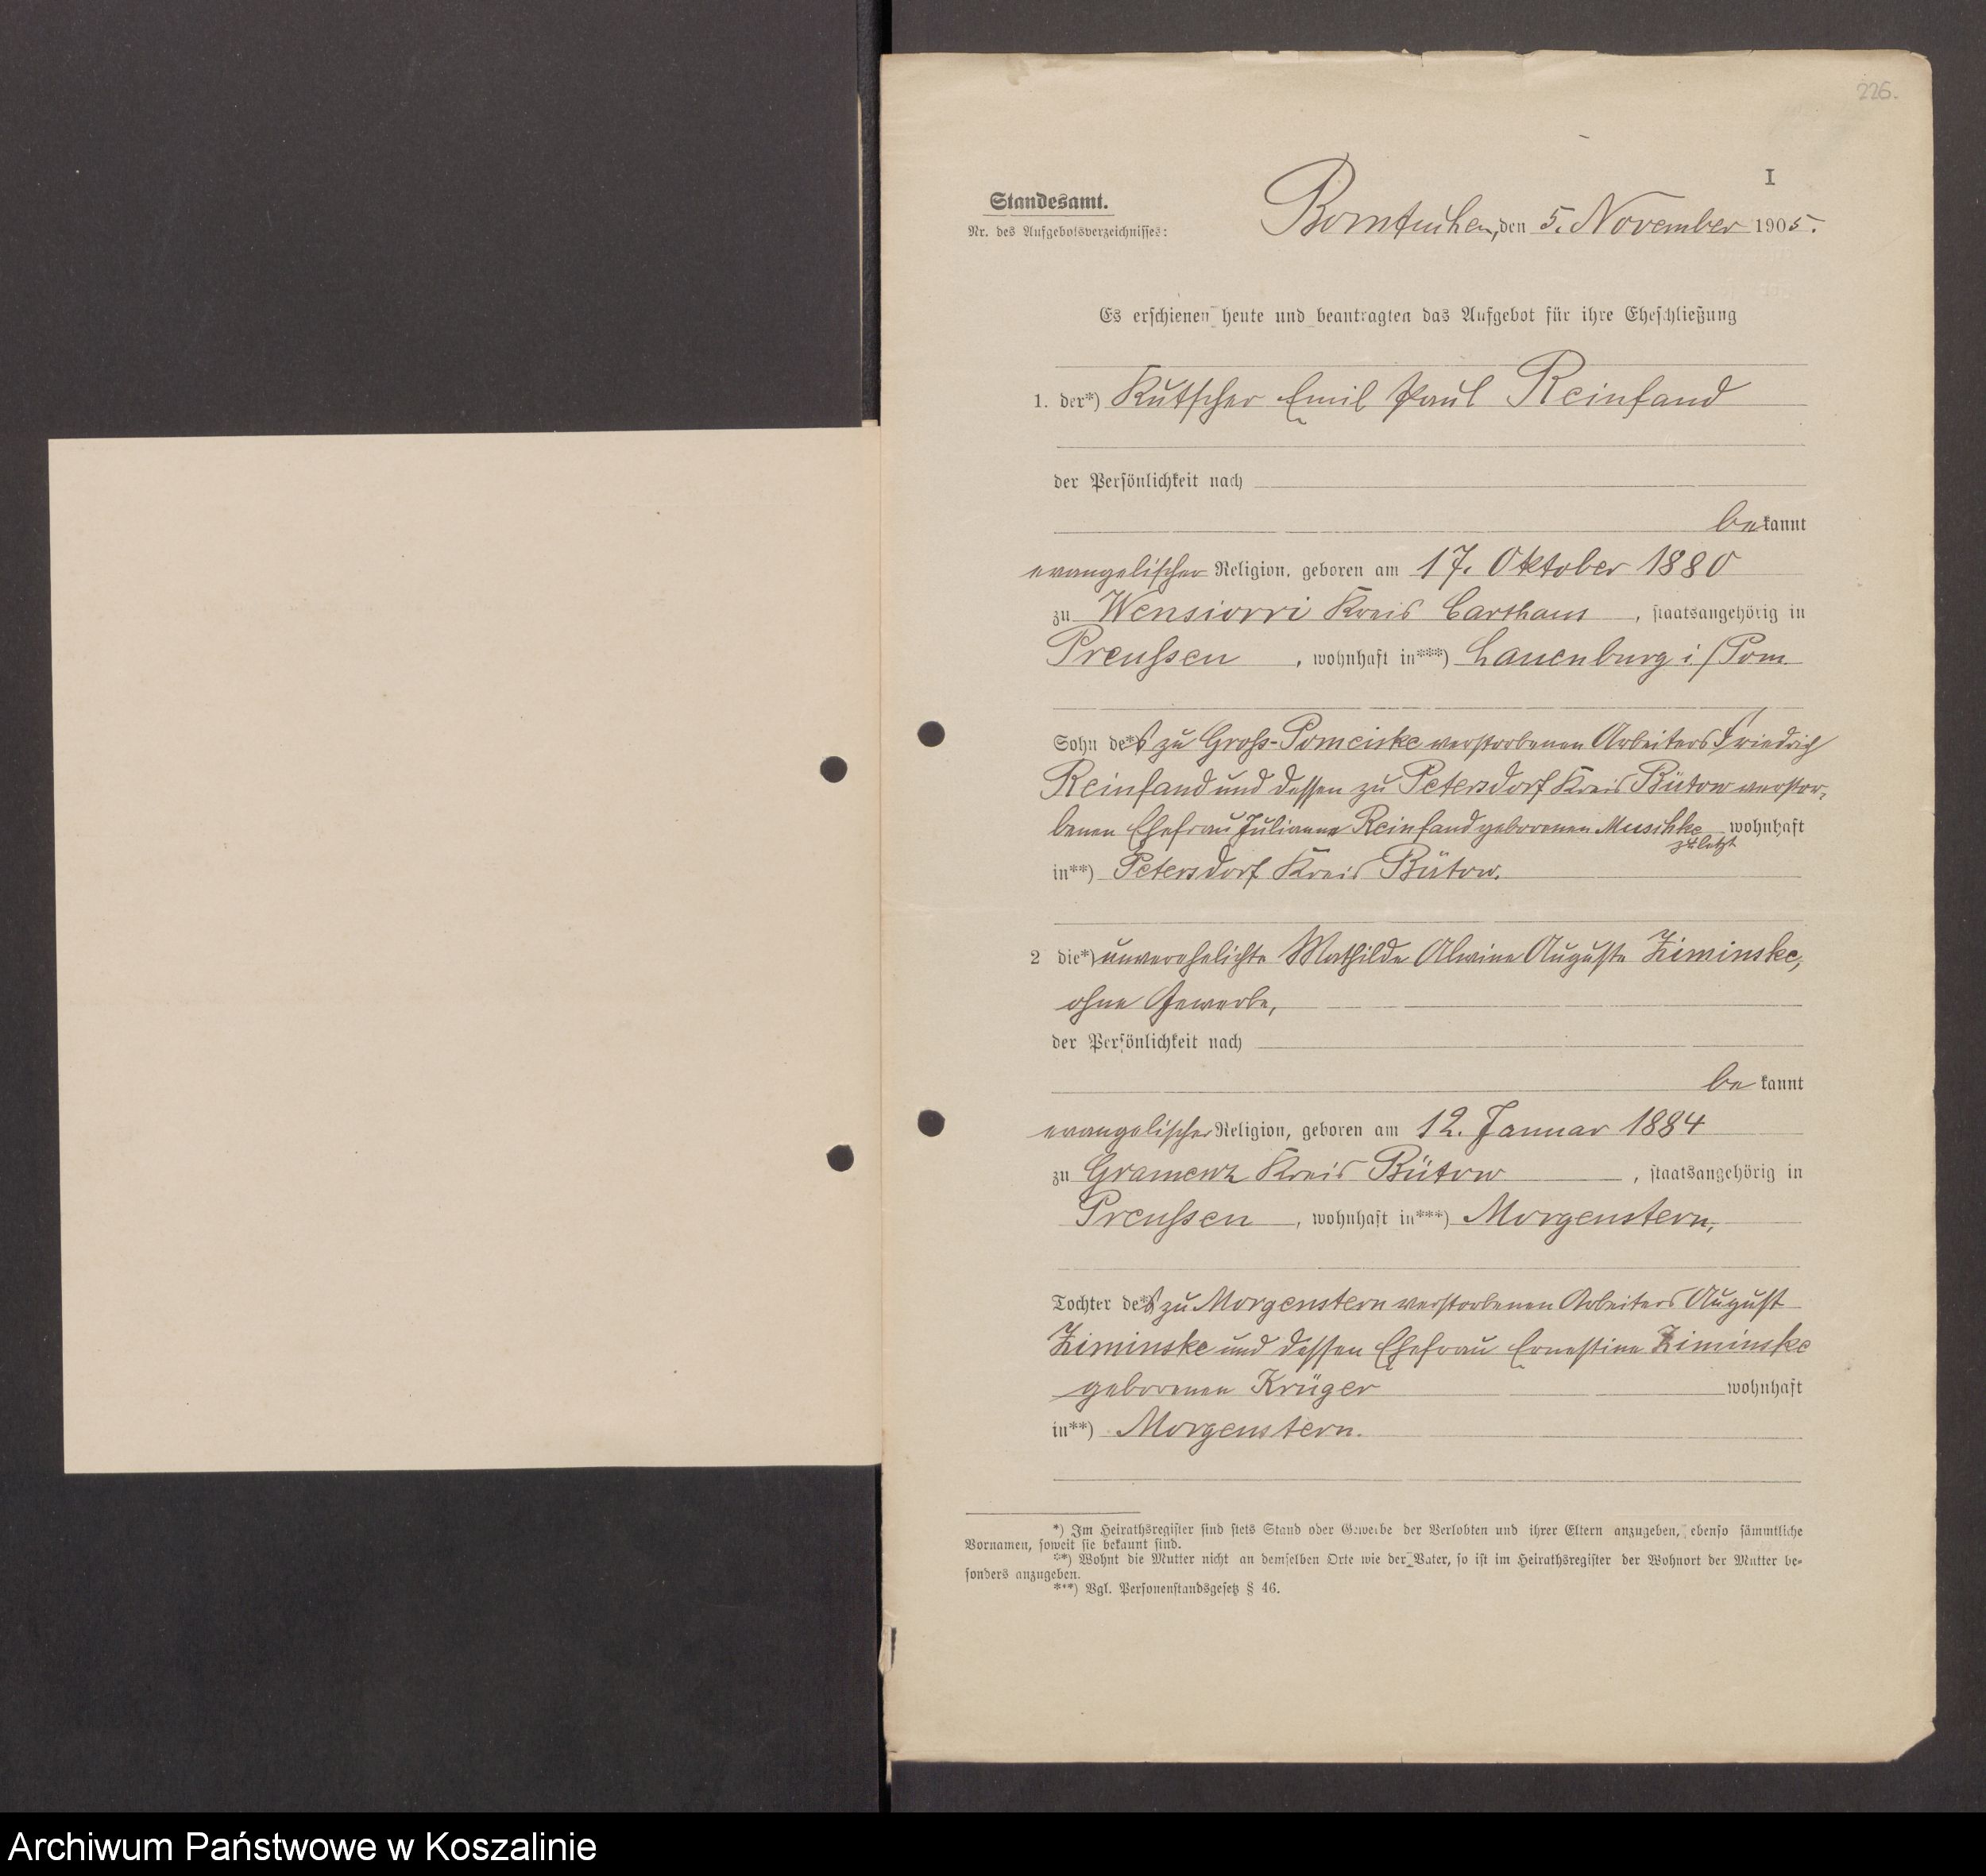 226.
I
Standesamt.
Nr. des Aufgebotsverzeichnisses:
Borntuchen, den 5. November 1905.
Es erschienen heute und beantragten das Aufgebot für ihre Eheschließung
1. der*) Kutscher Emil Paul Reinfand
der Persönlichkeit nach
bekannt
evangelischer Religion, geboren am 17. Oktober 1880
zu Wensiorri Kreis Carthaus, staatsangehörig in
Preußen, wohnhaft in***) Lauenburg i/Pom.
Sohn des*) zu Groß-Pomeiske verstorbenen Arbeiters Friedrich
Reinfand und dessen zu Petersdorf Kreis Bütow verstor-
benen Ehefrau Julianne Reinfand geborenen Muschke wohnhaft
zuletzt
in**) Petersdorf Kreis Bütow.
2 die*) unverehelichte Mathilde Alwine Auguste Ziminske,
ohne Gewerbe,
der Persönlichkeit nach
bekannt
evangelischer Religion, geboren am 12. Januar 1884
zu Gramenz Kreis Bütow, staatsangehörig in
Preußen, wohnhaft in***) Morgenstern,
Tochter des*) zu Morgenstern verstorbenen Arbeiters August
Ziminske und dessen Ehefrau Ernestine Ziminske
geborenen Krüger wohnhaft
in**) Morgenstern.
*) Im Heirathsregister sind stets Stand oder Gewerbe der Verlobten und ihrer Eltern anzugeben, ebenso sämmtliche
Vornamen, soweit sie bekannt sind.
**) Wohnt die Mutter nicht an demselben Orte wie der Vater, so ist im Heirathsregister der Wohnort der Mutter be-
sonders anzugeben.
***) Vgl. Personenstandsgesetz § 46.
Archiwum Państwowe w Koszalinie